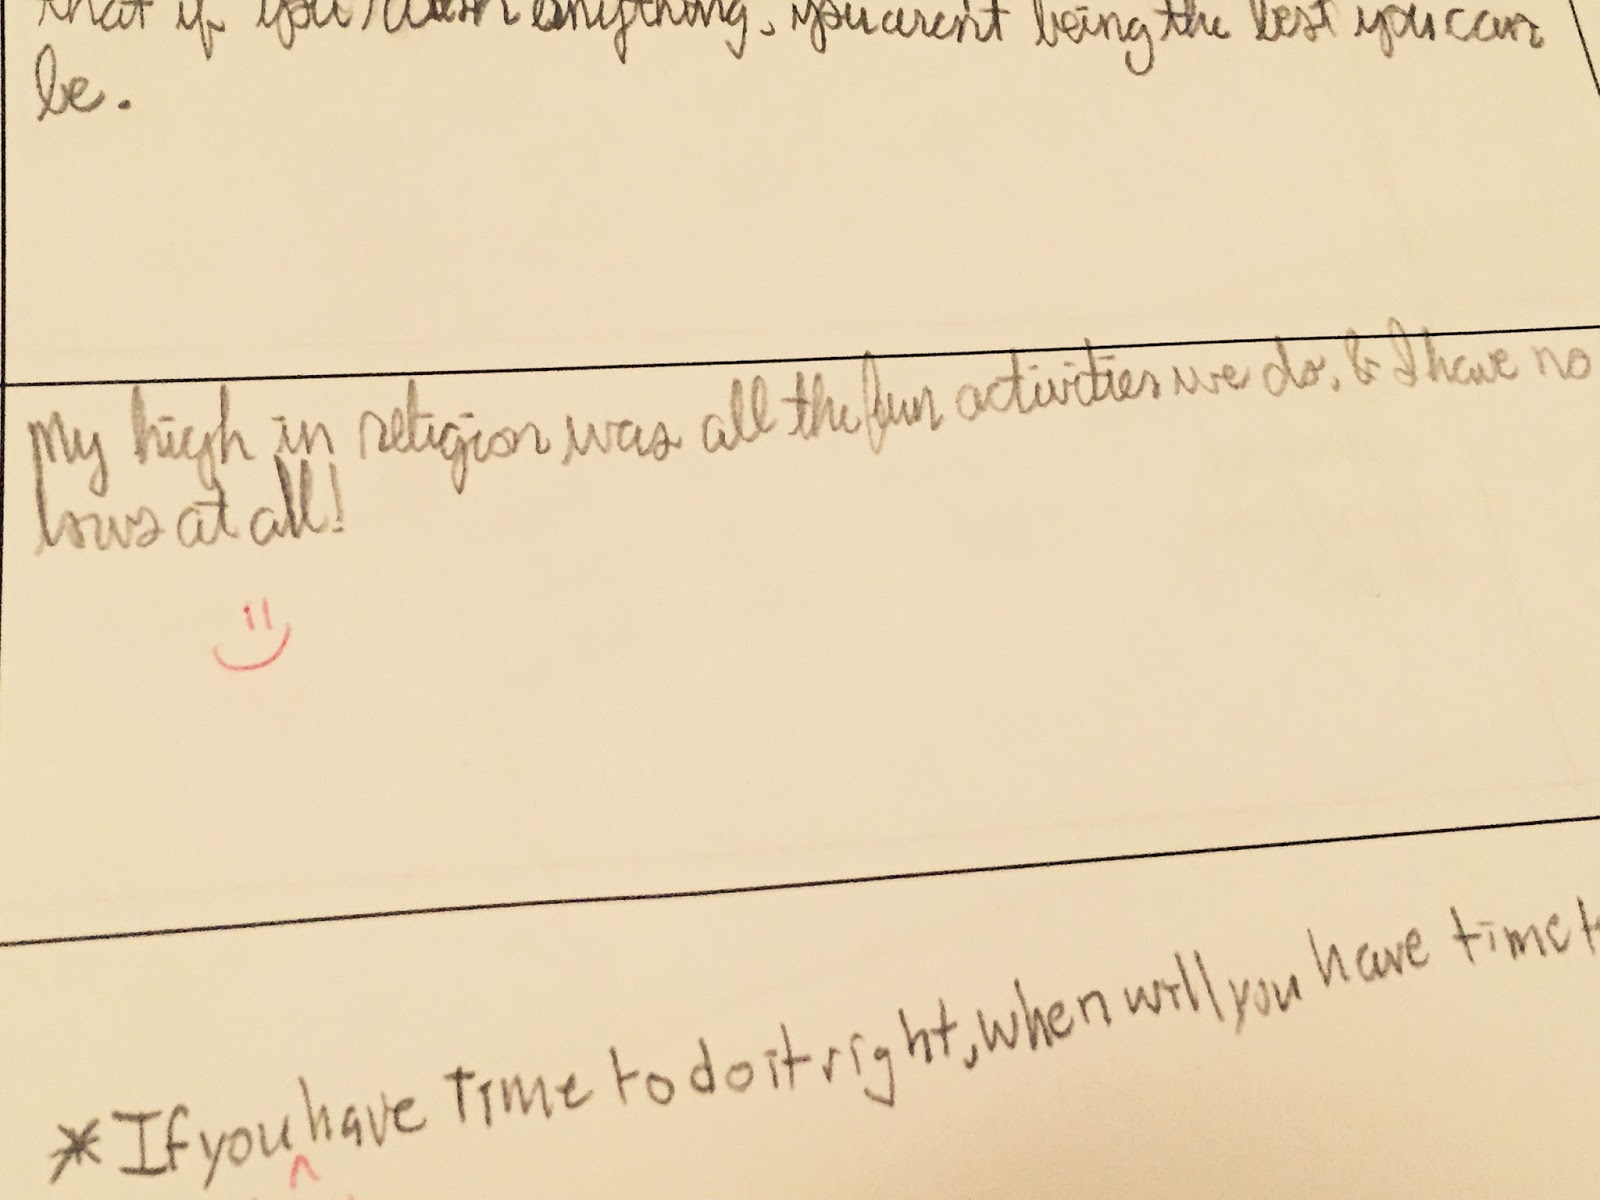 that if you rush anything, you aren't being the best you can
be.
My high in religion was all the fun activities we do, & I have no
lows at all!
* If you have time to do it right, when will you have time t
^